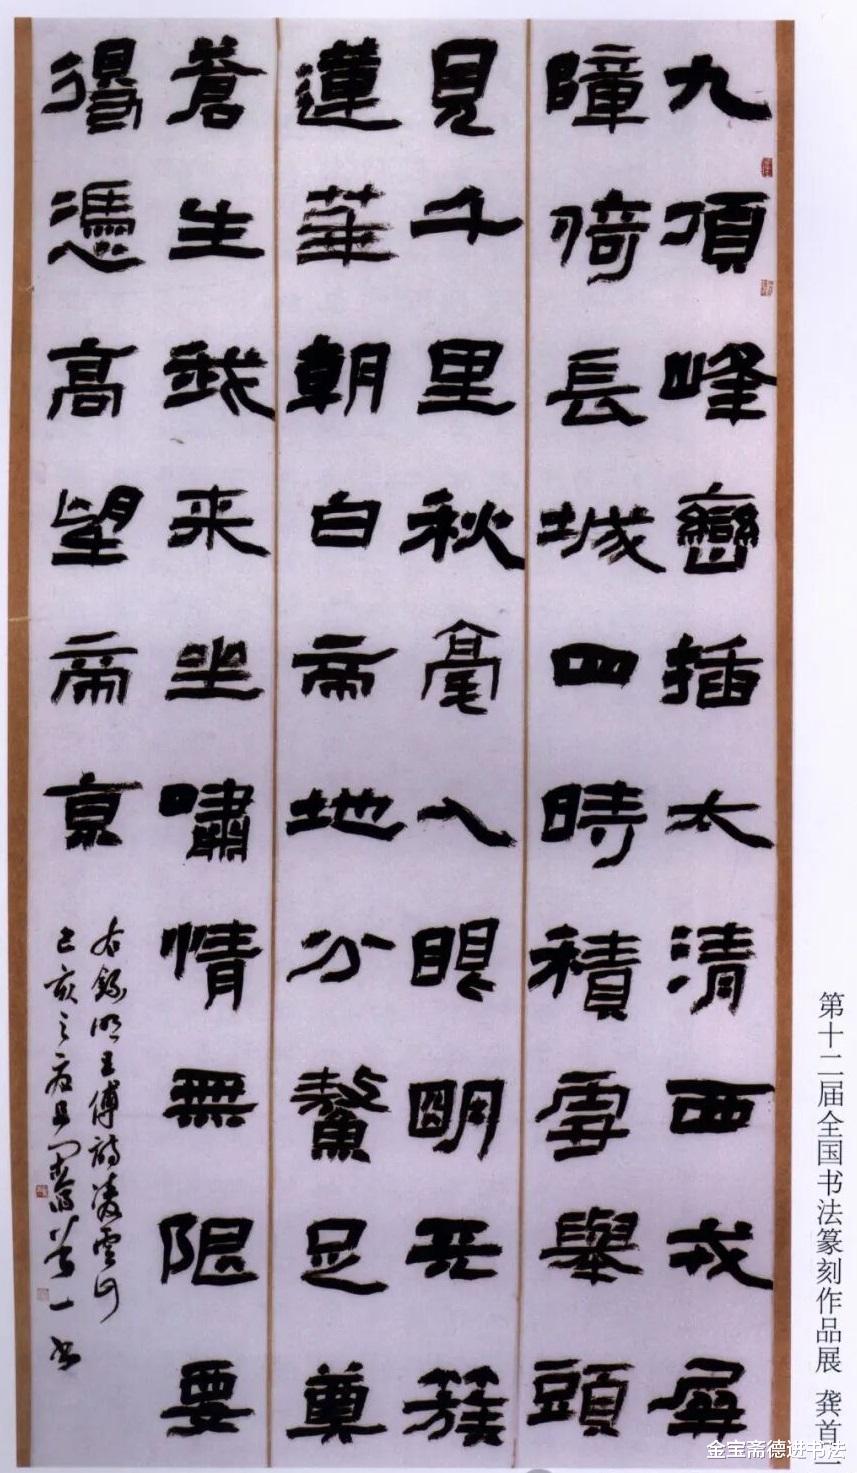 九頂峰巒插太清西戎屏
障倚長城四時積雪舉頭
見千里秋毫入眼明天簇
蓮華朝白帝地分鰲足奠
蒼生我来坐嘯情無限要
得憑高望帝京
右錄明王傅詩凌雲
己亥之一書
第十二届全国书法篆刻作品展 龚首一
金宝斋德进书法